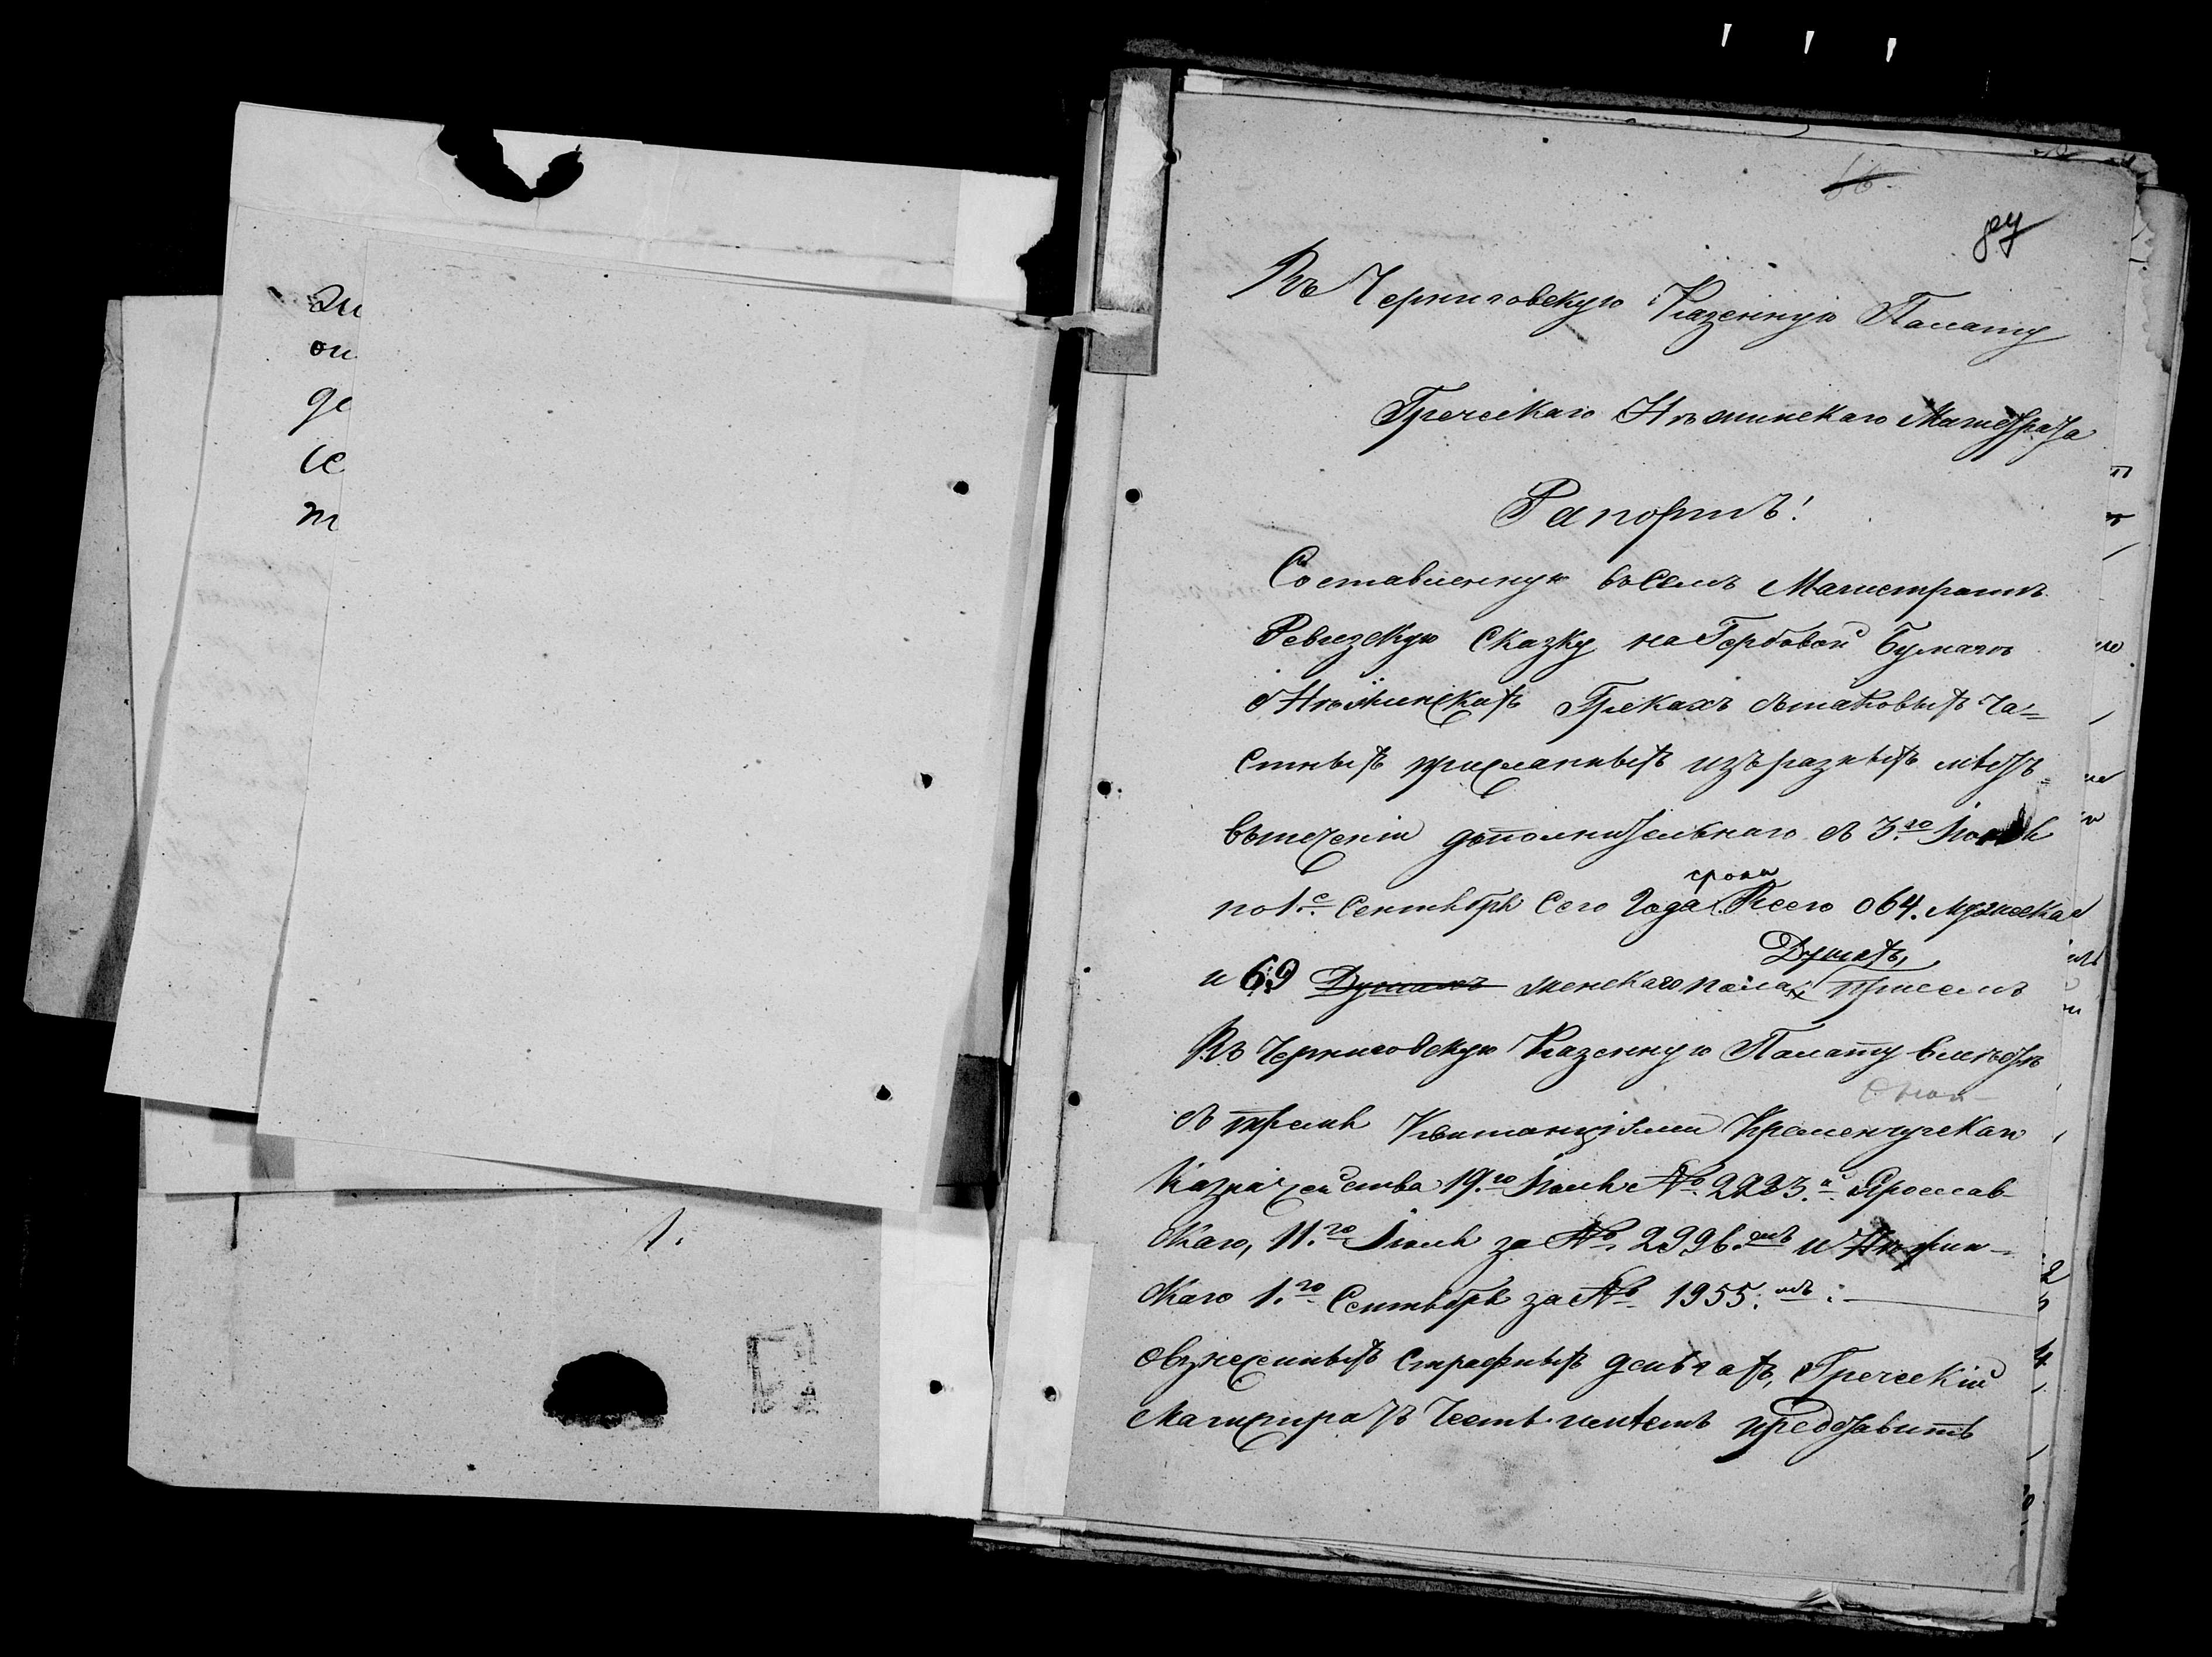 Въ Черниговскую Казенную Палату
Греческаго Нѣжинскаго Магистрата
Рапортъ!
Составленную въ Семъ Магистратѣ
Ревизскую Сказку на Гербовой Бумагѣ
о Нѣжинскихъ Грекахъ съ таковыхъ ча=
стныхъ присланныхъ изъ разныхъ мѣстъ
въ теченіи дополнительнаго съ 3.го Іюля
срока
по 1.е Сентября Сего Года Всего о 64. мужеска
Душахъ,
и 69 Душахъ женскаго пола при семъ
Въ Черниговскую Казенную Палату вмѣстѣ
съ тремя Квитанціями Кременчугскаго
Казначейства 19.го Іюля № 2223.й Ярослав
скаго, 11.го Іюля за № 2996.мъ и Нѣжин-
скаго 1.го Сентября за № 1955.мъ:
о взнесенныхъ штрафныхъ деньгахъ, Греческій
Магистратъ честь имѣетъ представить
1.